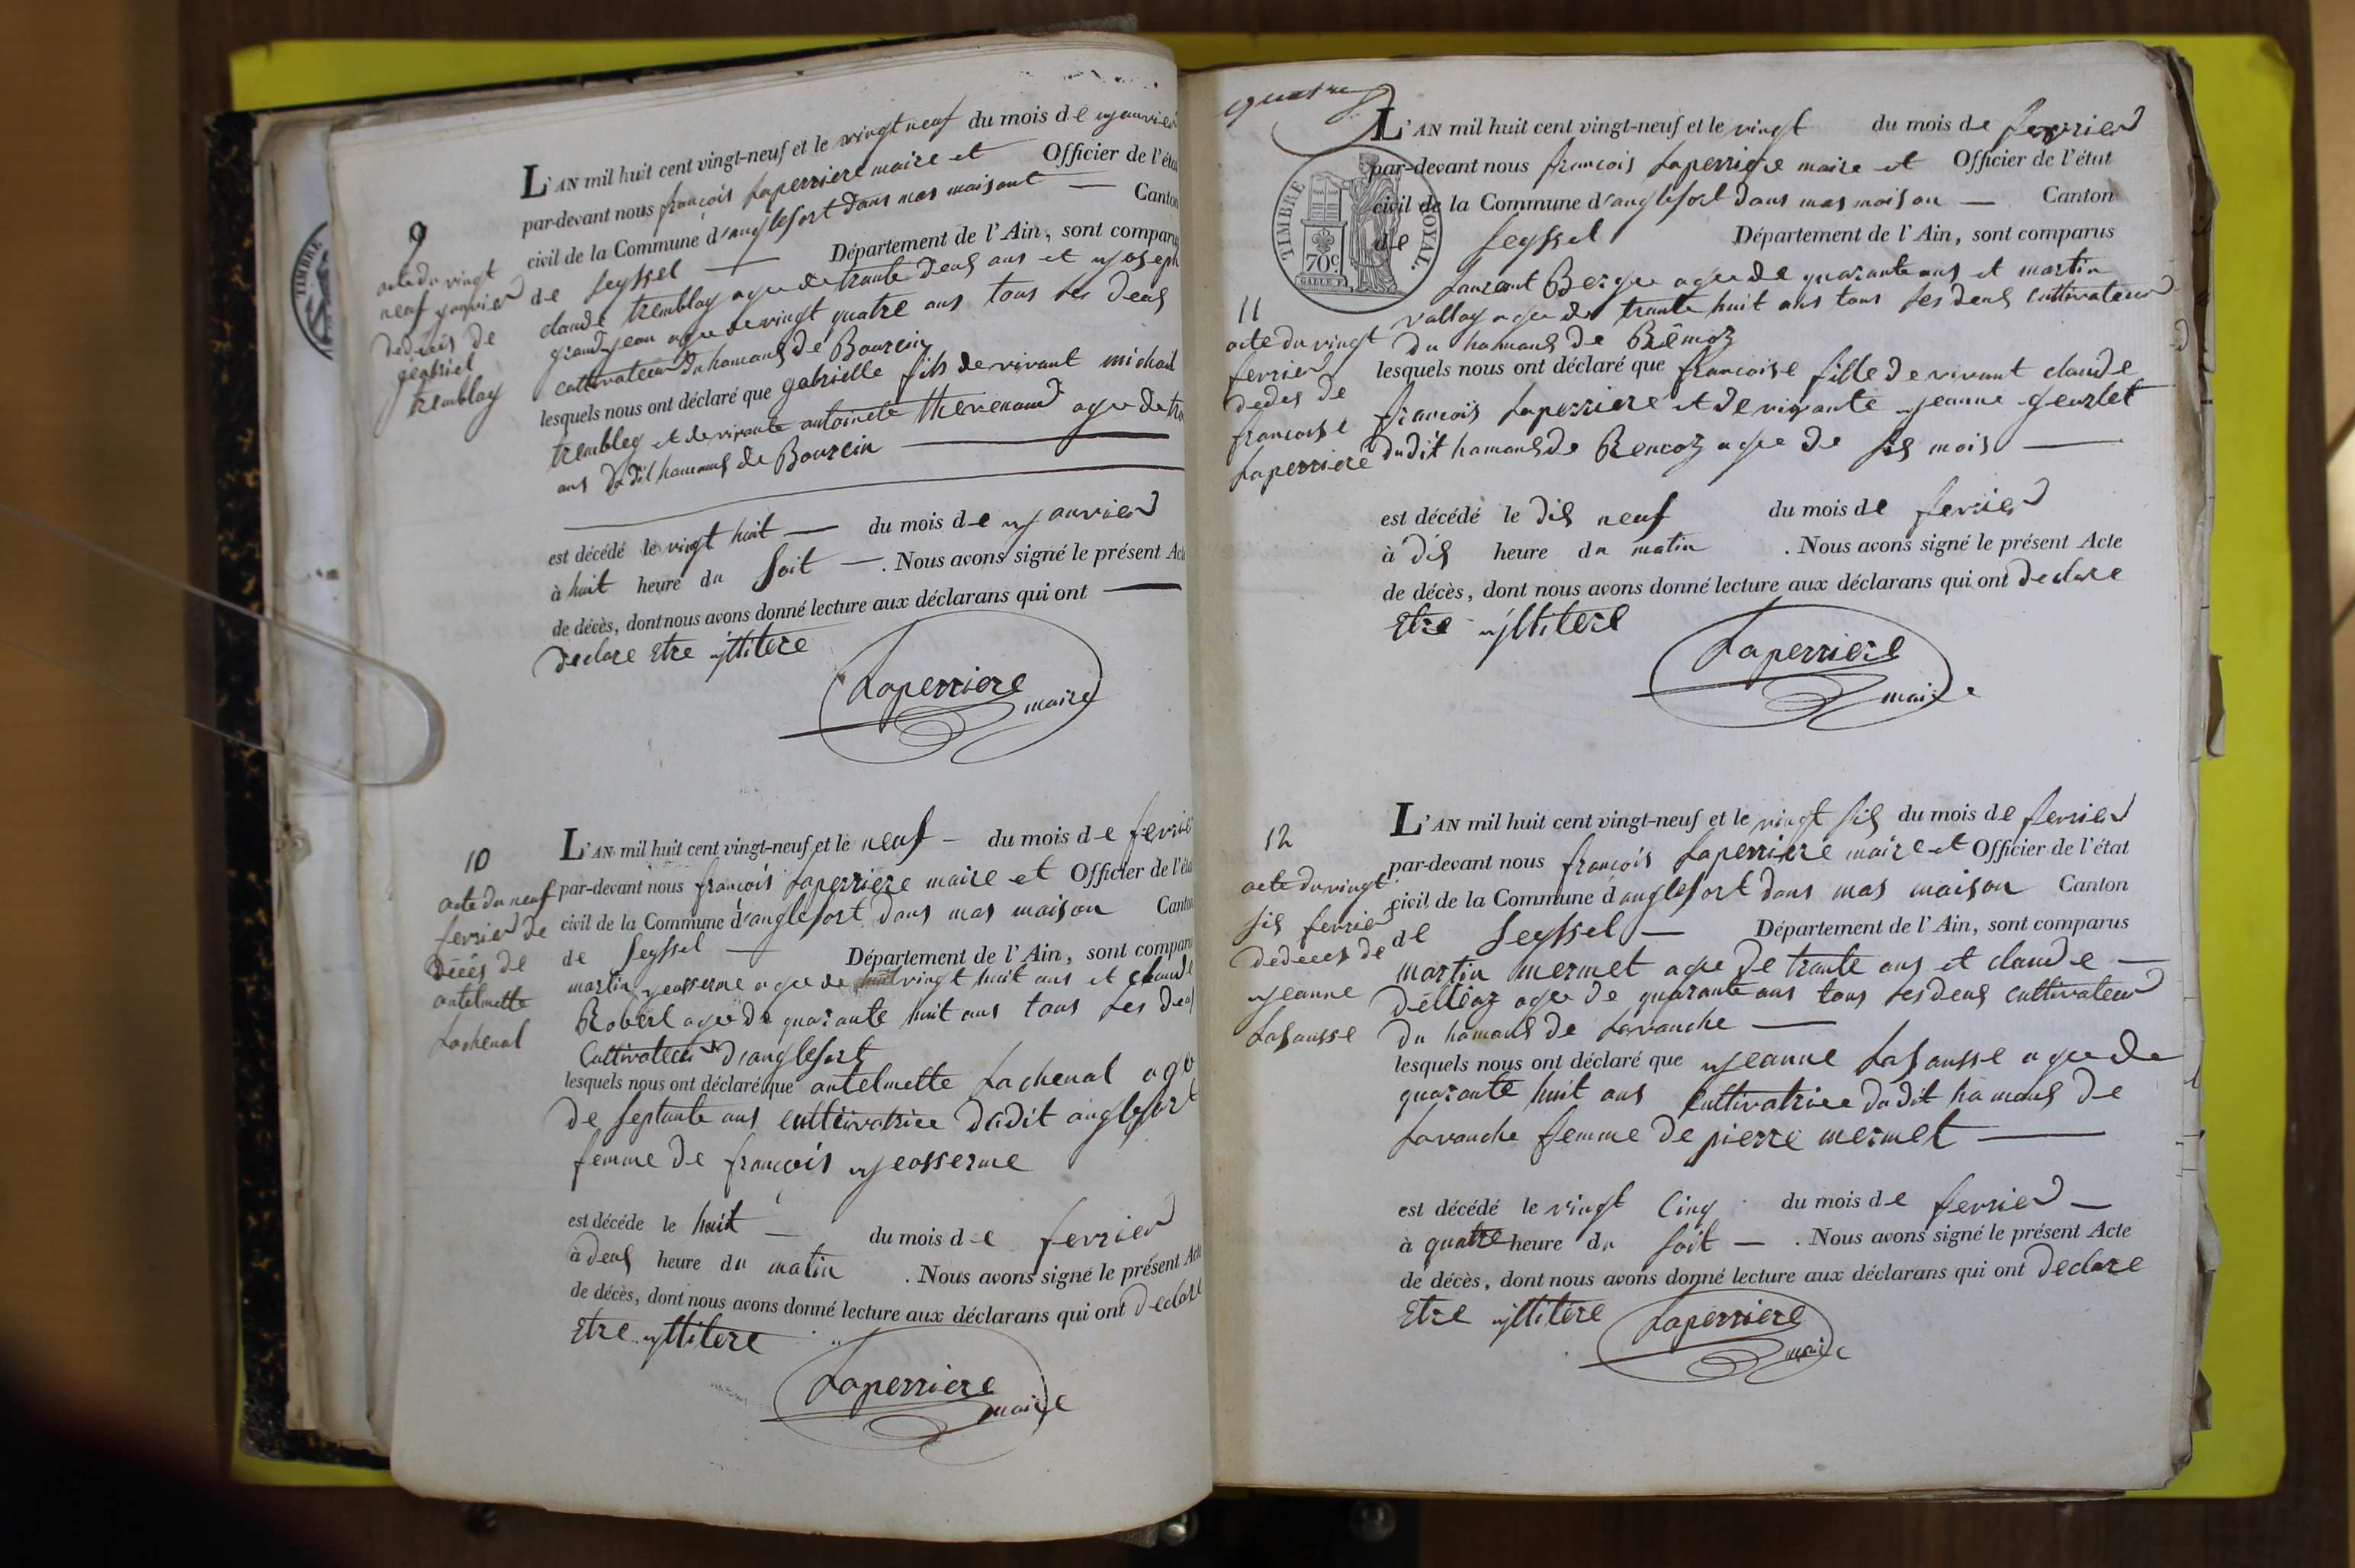 9
acte du vingt
neuf janvier
de deces de
gabriel
tremblay
L'AN mil huit cent vingt-neuf et le vingt neuf du mois de janvier
par-devant nous françois Laperriere maire et Officier de l'éta
civil de la Commune d'anglefort dans mas maisont — Canton
de Seyssel — Département de l'Ain, sont comparu
claude tremblay agee de trante deus ans et joseph
grand-jean agee de vingt quatre ans tous les deus
cultivateur du hamaus de Bourcin
lesquels nous ont déclaré que gabrielle fils de vivant michail
trembley et de vivante antoinete thevenand agee de
ans du dit hamaus de Bourcin
est décédé le vingt huit — du mois de janvier
à huit heure du soit —. Nous avons signé le présent Acte
de décès, dont nous avons donné lecture aux déclarans qui ont —
declare Etre illitere
Laperriere
maire
10
acte du neuf
fevrier de
décés de
antelmette
Lachenal
L'AN mil huit cent vingt-neuf et le neuf — du mois de fevrie
par-devant nous françois Laperriere maire et Officier de l'éta
civil de la Commune d'anglefort dans mas maison Canto
de Seyssel — Département de l'Ain, sont compar
martin jeasserme agee de vingt huit ans et claude
Robert agee de quarante huit ans tous les deus
Cultivateur d'anglefort
lesquels nous ont déclaré que antelmette Lachenal age
de septante ans cultivatrice dudit anglefort
femme de françois jeasserme
est décédé le huit — du mois de fevrier
à deus heure du matin . Nous avons signé le présent Acte
de décès, dont nous avons donné lecture aux déclarans qui ont declare
Etre illitere
Laperriere
maire
quatre
TIMBRE ROYAL.
70c
11
acte du vingt
fevrier
dedes de
francoise
Laperriere
L'AN mil huit cent vingt-neuf et le vingt du mois de fevrier
par-devant nous francois Laperriere maire et Officier de l'état
civil de la Commune d'anglefort dans mas maison — Canton
de Seyssel Département de l'Ain, sont comparus
Laurent Berger agee de quarante ans et martin
vallay agee de trante huit ans tous les deus cultivateur
du hamaus de Rêmoz
lesquels nous ont déclaré que francoise fille de vivant claude
françois Laperriere et de vivante jeanne geurlet
dudit hamaus de Remoz agee de sis mois —
est décédé le dis neuf du mois de fevrier
à dis heure du matin . Nous avons signé le présent Acte
de décès, dont nous avons donné lecture aux déclarans qui ont declare
Etre illitere
Laperriere
maire
12
acte du vingt
sis fevrier
de deces de
jeanne
Lasausse
L'AN mil huit cent vingt-neuf et le vingt sis du mois de fevrier
par-devant nous françois Laperriere maire et Officier de l'état
civil de la Commune d'anglefort dans mas maison Canton
de Seyssel — Département de l'Ain, sont comparus
martin mermet agee de trante ans et claude —
délléaz agee de quarante ans tous les deus cultivateur
du hamaus de Lavanche —
lesquels nous ont déclaré que jeanne Lasausse agee de
quarante huit ans Cultivatrice dudit hamaus de
Lavanche femme de pierre mermet —
est décédé le vingt Cinq du mois de fevrier —
à quatre heure du soit — . Nous avons signé le présent Acte
de décès, dont nous avons donné lecture aux déclarans qui ont declare
Etre illitere Laperriere
maire